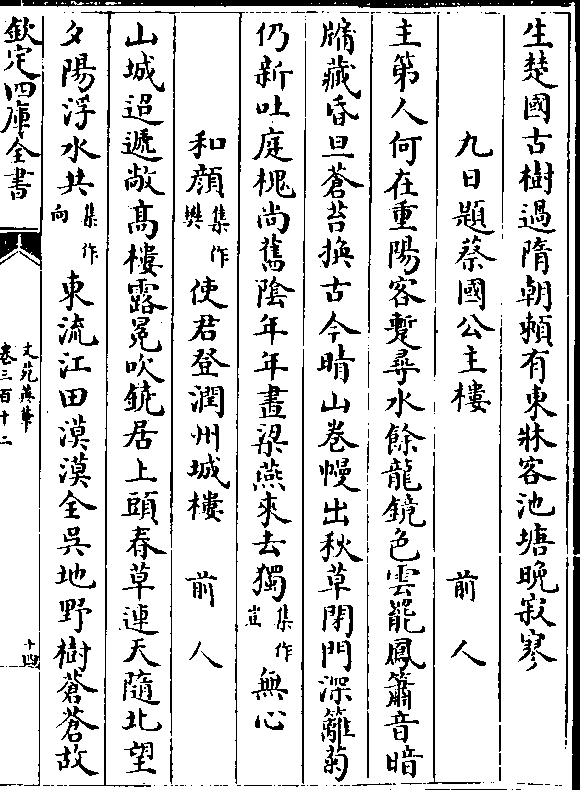 生楚國古樹過隋朝頼有東牀客池塘晚寂寥
九日題蔡國公主樓 前人
主第人何在重陽客暫尋水餘龍鏡色雲罷鳳簫音暗
牖藏昏旦蒼苔換古今晴山卷幔出秋草閉門深籬菊
仍新吐庭槐尚舊隂年年畫梁燕來去獨集作豈無心
和顔集作樊使君登潤州城樓 前人
山城迢遞敞髙樓露冕吹鐃居上頭春草連天隨北望
夕陽浮水共集作向東流江田漠漠全吳地野樹蒼蒼故
欽定四庫全書
文苑英華
卷三百十二
十四